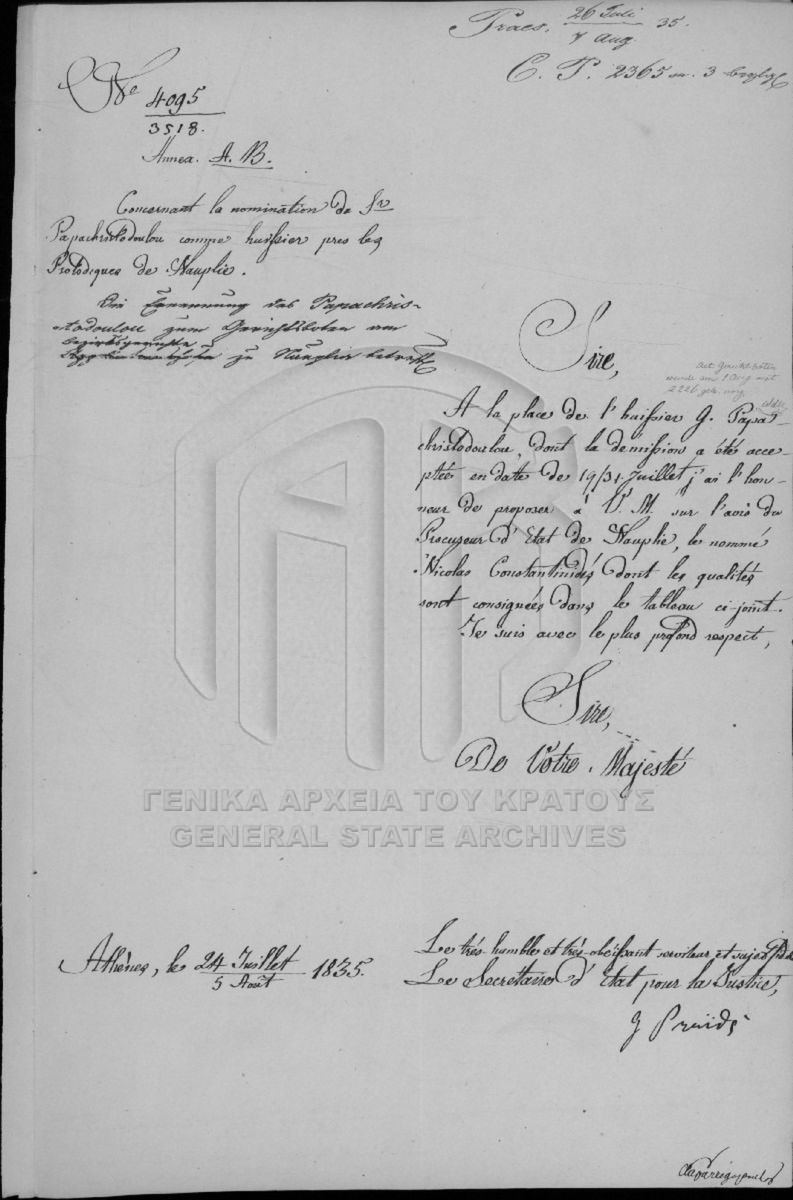 Praes. 26 Juli / 7 Aug. 35.
C. P. 2365
No 4095
3518.
Annex. A. B.
Concernant la nomination de Sr
Papachristodoulou comme huissier pres les
Protodiques de Nauplie.
Die Ernennung des Papachris-
todoulou zum Gerichtsboten am
Bezirksgerichte
zu Nauplia betreff.
Sire,
A la place de l'huissier G. Papa-
christodoulou, dont la démission a été acce-
ptée en date de 19/31 Juillet j'ai l'hon-
neur de proposer à V. M. sur l'avis du
Procureur d'Etat de Nauplie, le nommé
Nicolas Constantinidés dont les qualités
sont consignées dans le tableau ci-joint.
Je suis avec le plus profond respect,
Sire,
De Votre Majesté
ΓΕΝΙΚΑ ΑΡΧΕΙΑ ΤΟΥ ΚΡΑΤΟΥΣ
GENERAL STATE ARCHIVES
Le très-humble et très-obéissant serviteur et sujet fidèle
Le Secrétaire d'Etat pour la Justice,
Athènes, le 24 Juillet / 5 Août 1835.
G Praïdis